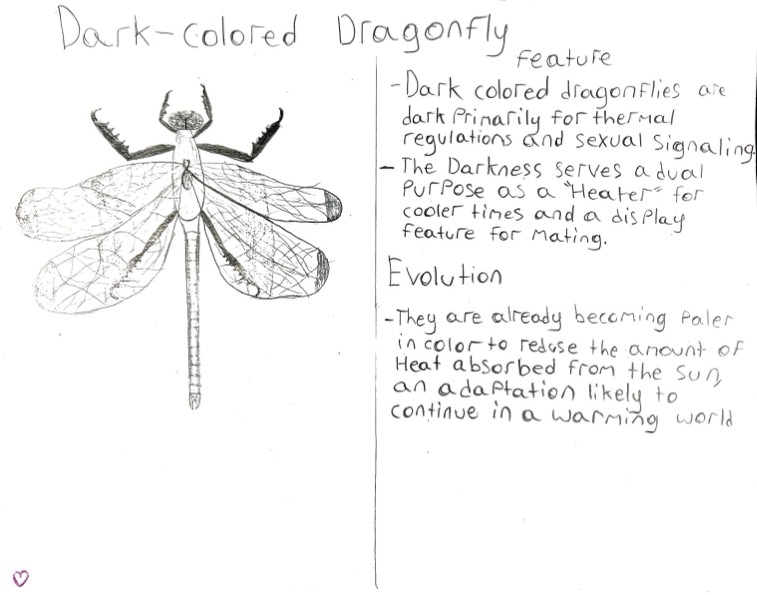 Dark-colored Dragonfly
Feature
- Dark colored dragonflies are
dark Primarily for thermal
regulations and sexual signaling.
- The Darkness serves a dual
Purpose as a "Heater" for
cooler times and a display
feature for mating.
Evolution
- They are already becoming Paler
in color to reduse the amount of
Heat absorbed from the sun,
an adaptation likely to
continue in a warming world